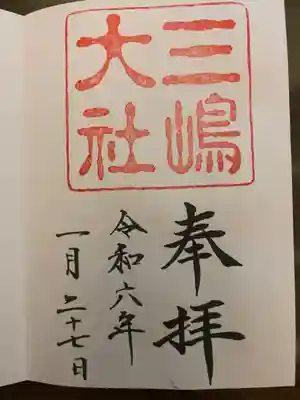 三嶋
大社
奉拝
令和六年
一月二十七日